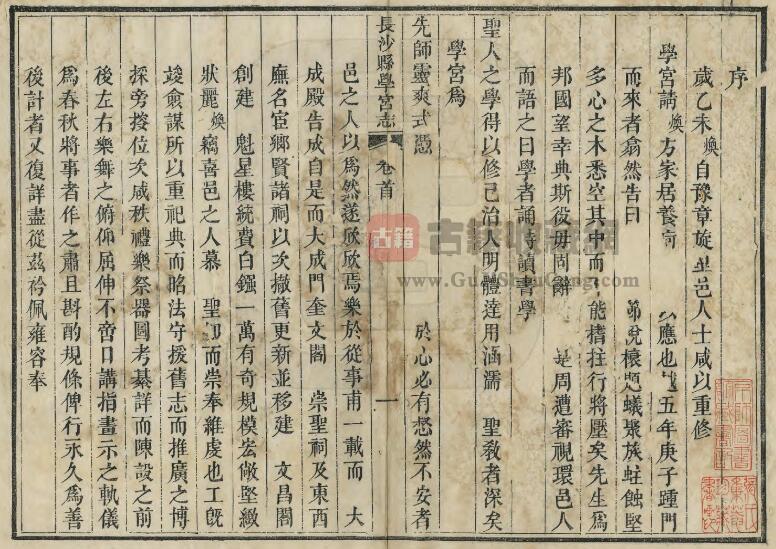 序
歲乙未煥自豫章旋里邑人士咸以重修
學宮請煥方家居養疴
應也越五年庚子踵門
而來者翕然告曰
節梲榱題蟻聚族蛀蝕堅
多心之木悉空其中而
能搘拄行將壓矣先生爲
邦國望幸典斯役毋固辭
是周遭審視環邑人
而語之曰學者誦詩讀書學
聖人之學得以修己治人明體達用涵濡 聖敎者深矣
學宮爲
先師靈爽式憑
於心必有惄然不安者
長沙縣學宮志 卷首 一
邑之人以爲然遂欣欣焉樂於從事甫一載而 大
成殿告成自是而大成門奎文閣 崇聖祠及東西
廡名宦鄉賢諸祠以次撤舊更新並移建 文昌閣
創建 魁星樓統費白鏹一萬有奇規模宏敞堅緻
狀麗煥竊喜邑之人慕 聖切而崇奉維虔也工旣
竣僉謀所以重祀典而昭法守援舊志而推廣之博
採旁搜位次咸秩禮樂祭器圖考綦詳而陳設之前
後左右樂舞之俯仰屈伸不啻口講指畫示之軌儀
爲春秋將事者作之肅且斟酌規條俾行永久爲善
後計者又復詳盡從茲衿佩雍容奉
古籍
www.GuJiShuCang.com